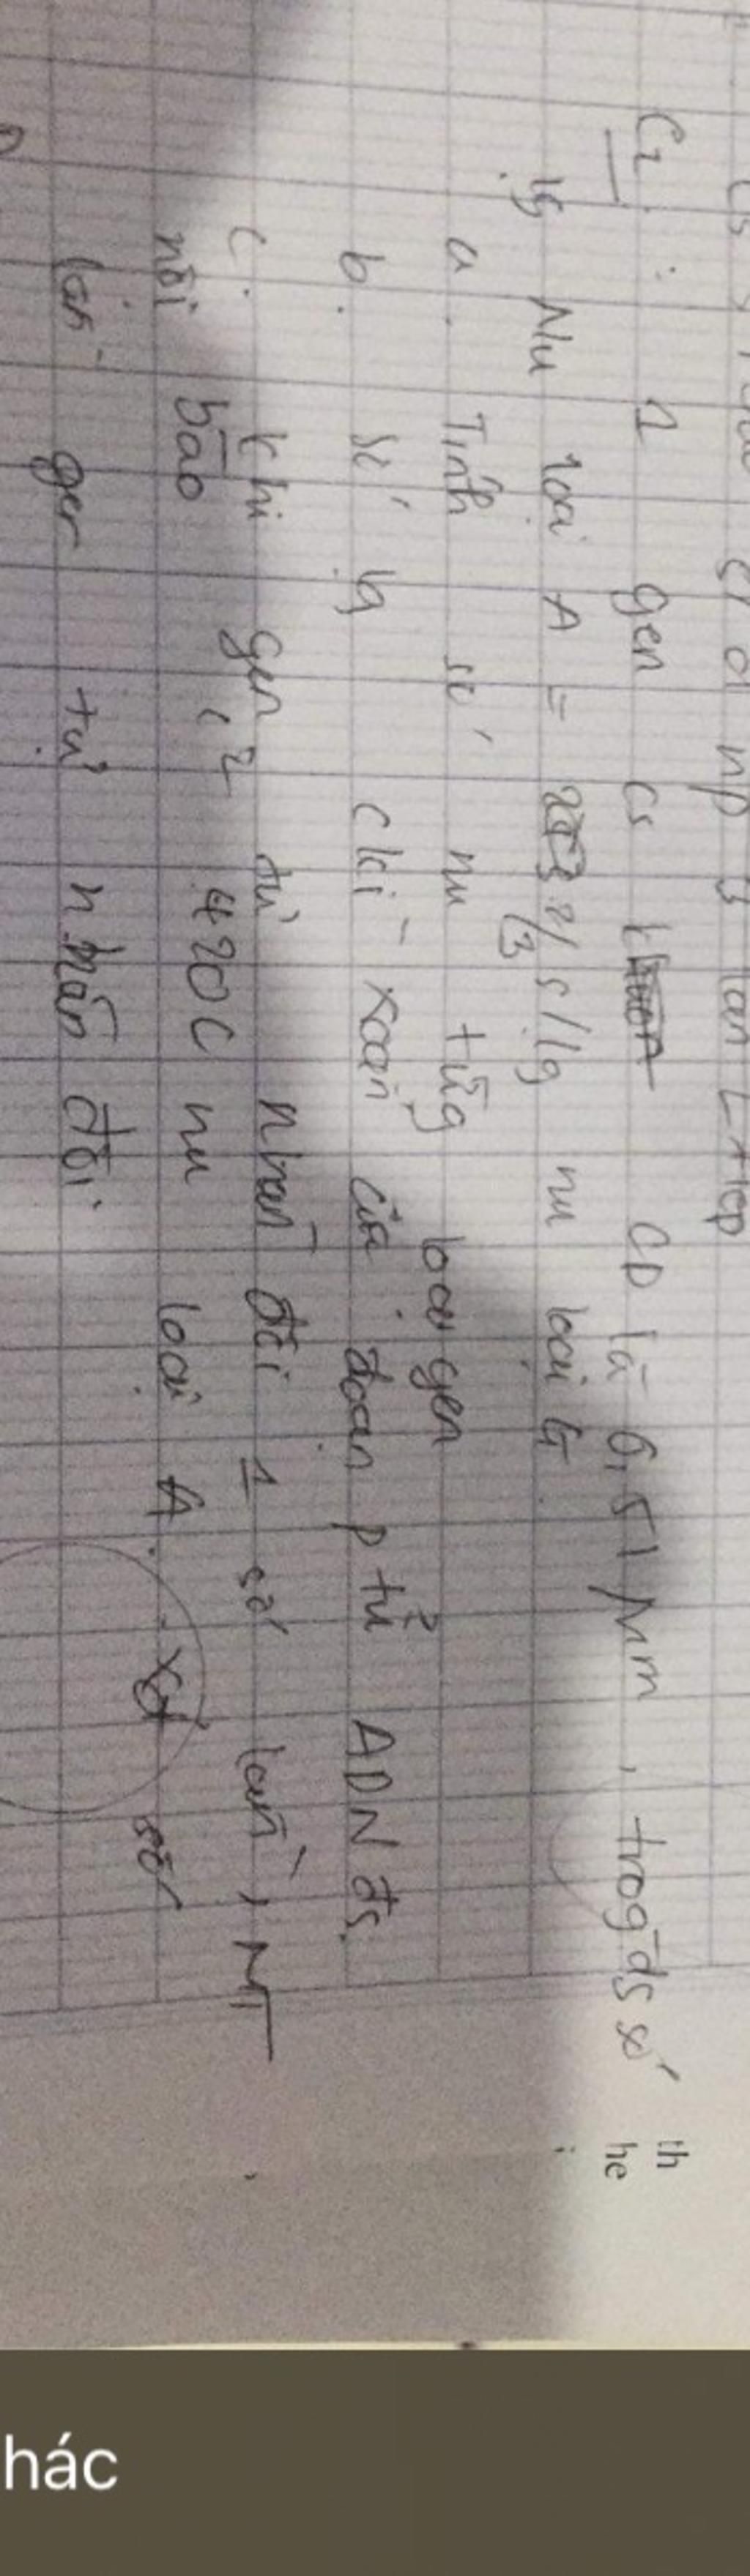 C2: 1 gen cs CD là 0,51 µm, trog đs số
lg Nu loại A = 2/3 s/lg nu loại G
a. Tính số nu từg loại gen
b. số lg ckì xoắn của đoạn ptử ADN đs.
c. khi gen tự nhân đôi 1 số lần, MT
nội bào 4200 nu loại A. số
lần gen tự nhân đôi
th
he
hác